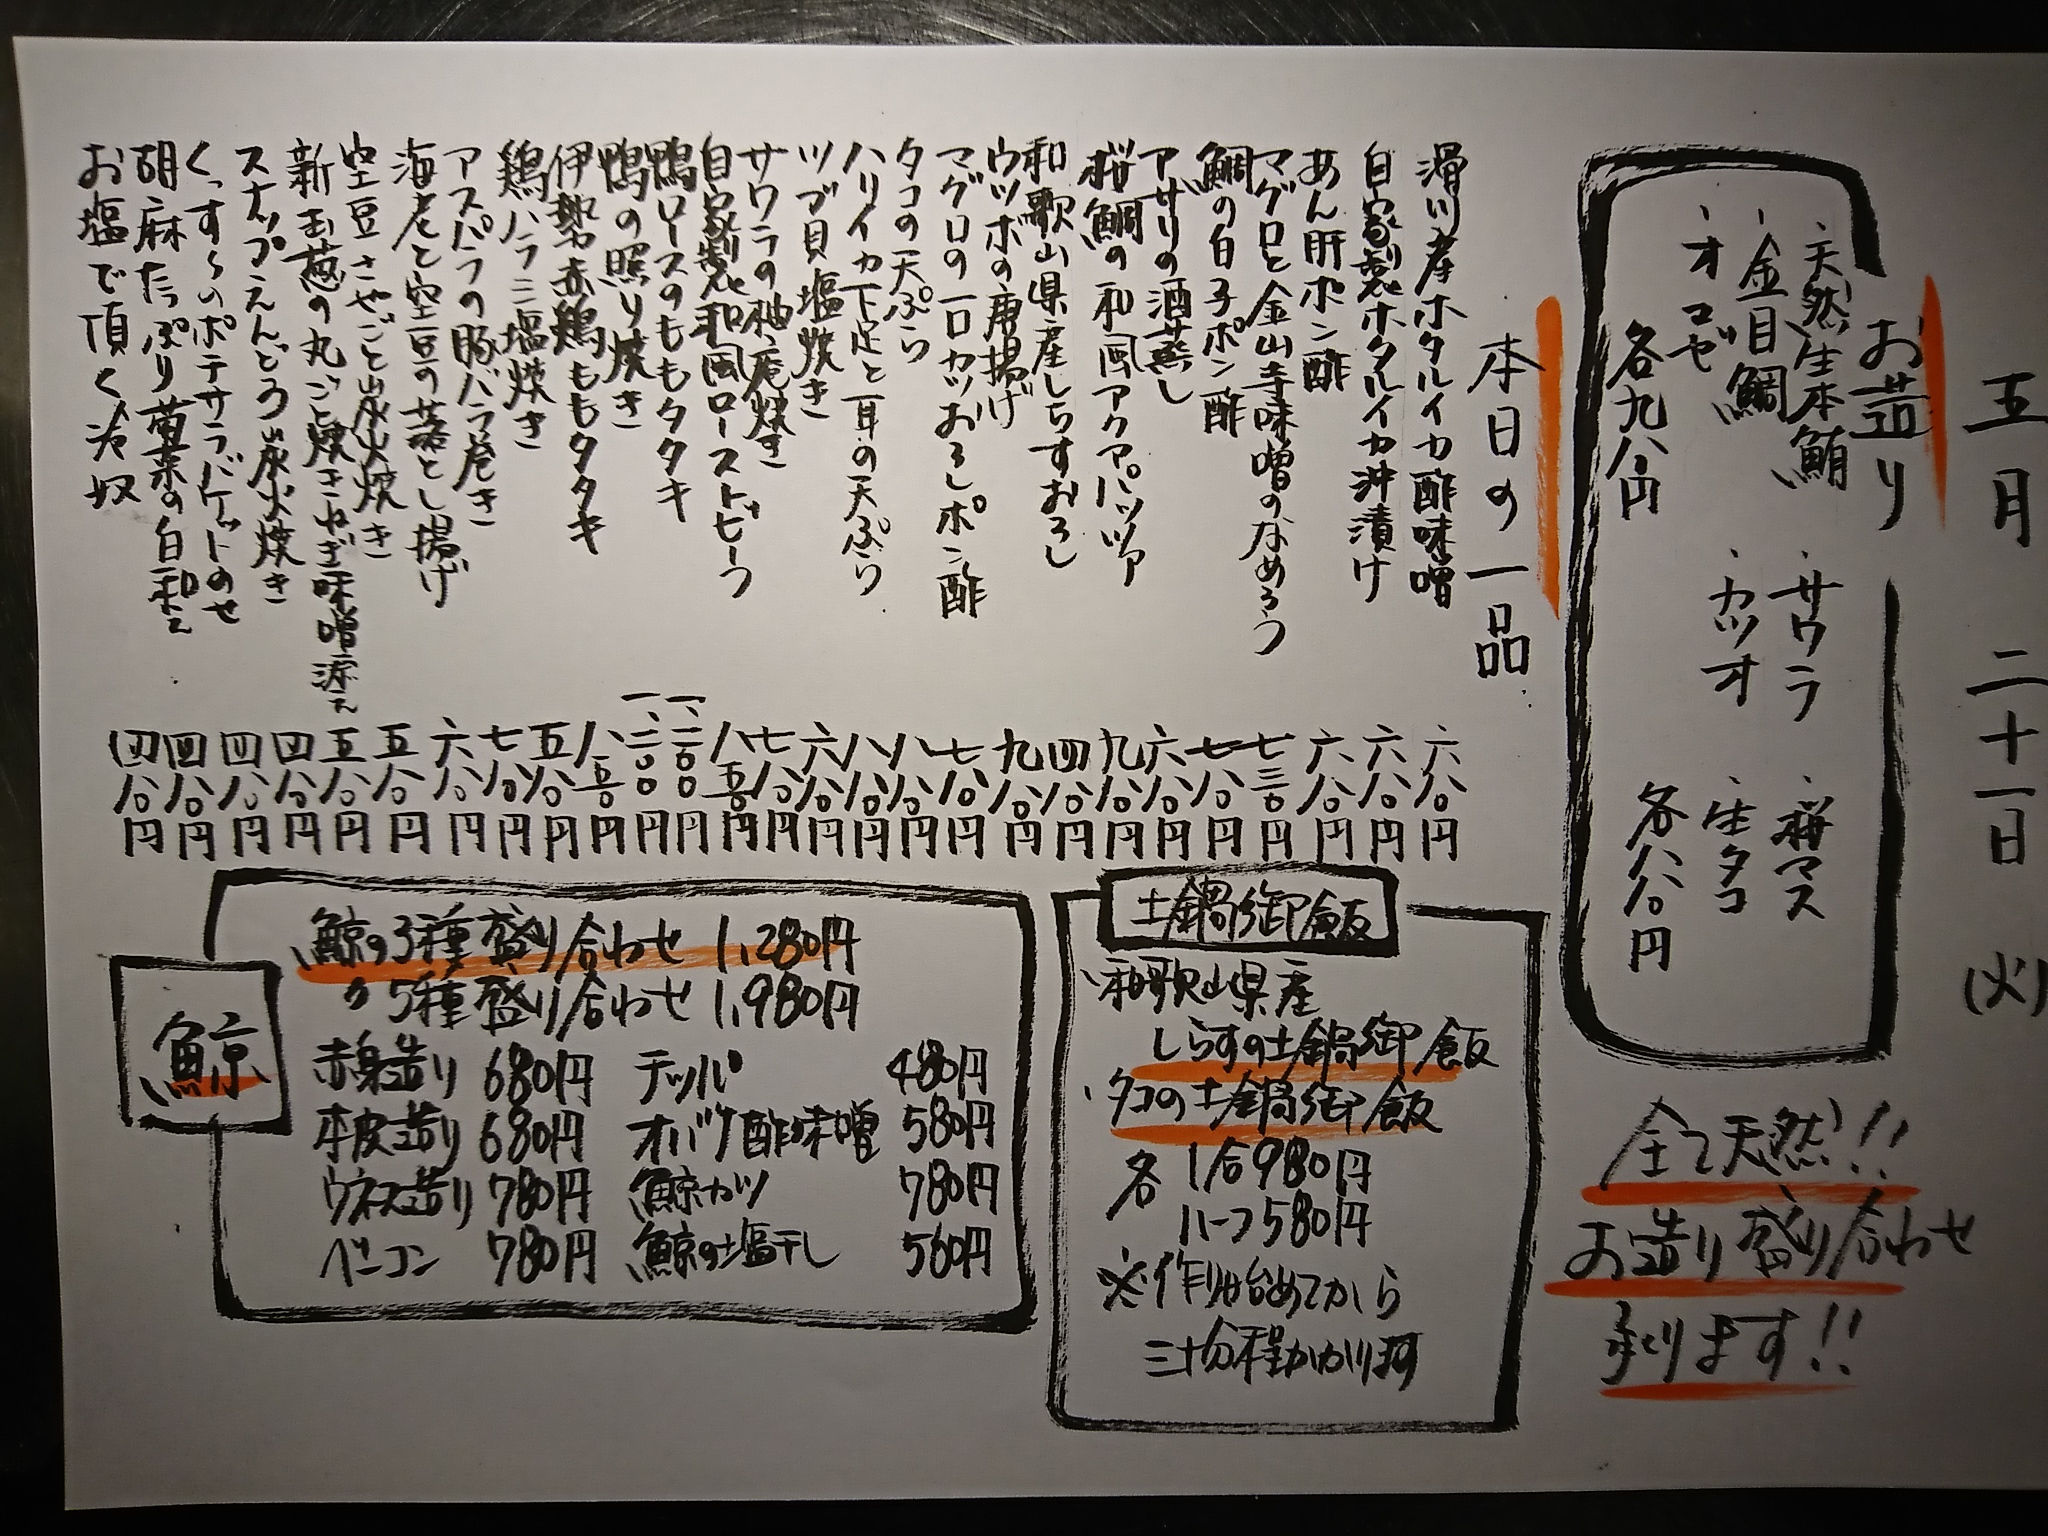 五月二十一日(火)
お造り
・天然生本鮪
・金目鯛
・オコゼ
各九八〇円
・サワラ
・カツオ
・桜マス
・生タコ
各八八〇円
全て天然!!
お造り盛り合わせ
承ります!!
本日の一品
滑川産ホタルイカ酢味噌 六八〇円
自家製ホタルイカ沖漬け 六八〇円
あん肝ポン酢 六八〇円
マグロと金山寺味噌のなめろう 七三〇円
鯛の白子ポン酢 七八〇円
アサリの酒蒸し 六八〇円
桜鯛の和風アクアパッツァ 九八〇円
和歌山県産しらすおろし 四八〇円
ウツボの唐揚げ 九八〇円
マグロの一口カツおろしポン酢 七八〇円
タコの天ぷら 八八〇円
ハリイカ下足と耳の天ぷら 八八〇円
ツブ貝塩焼き 六八〇円
サワラの柚庵焼き 七八〇円
自家製和風ローストビーフ 八五〇円
鴨ロースのももタタキ 一、二〇〇円
鴨の照り焼き 一、二〇〇円
伊勢赤鶏ももタタキ 八五〇円
鶏ハラミ塩焼き 五八〇円
アスパラの豚バラ巻き 七八〇円
海老と空豆の落とし揚げ 六八〇円
空豆さやごと炭火焼き 五八〇円
新玉葱の丸ごと焼きねぎ味噌添え 五八〇円
スナップえんどう炭火焼き 四八〇円
くっすぃポテサラバケットのせ 四八〇円
胡麻たっぷり菊菜の白和え 四八〇円
お塩で頂く冷奴 四八〇円
土鍋御飯
・和歌山県産
しらすの土鍋御飯
・タコの土鍋御飯
各 1合980円
ハーフ580円
※作り始めてから
三十分程かかります
鯨
鯨の3種盛り合わせ 1,280円
〃 5種盛り合わせ 1,980円
赤身造り 680円 テッパ 480円
本皮造り 680円 オバケ酢味噌 580円
ウネス造り 780円 鯨カツ 780円
ベーコン 780円 鯨の塩干し 560円